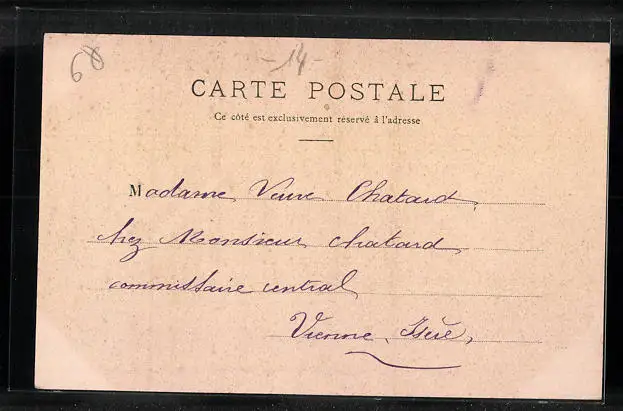 60 -14-
CARTE POSTALE
Ce côté est exclusivement réservé à l'adresse
Madame Veuve Chatard
chez Monsieur Chatard
commissaire central
Vienne, Isère,